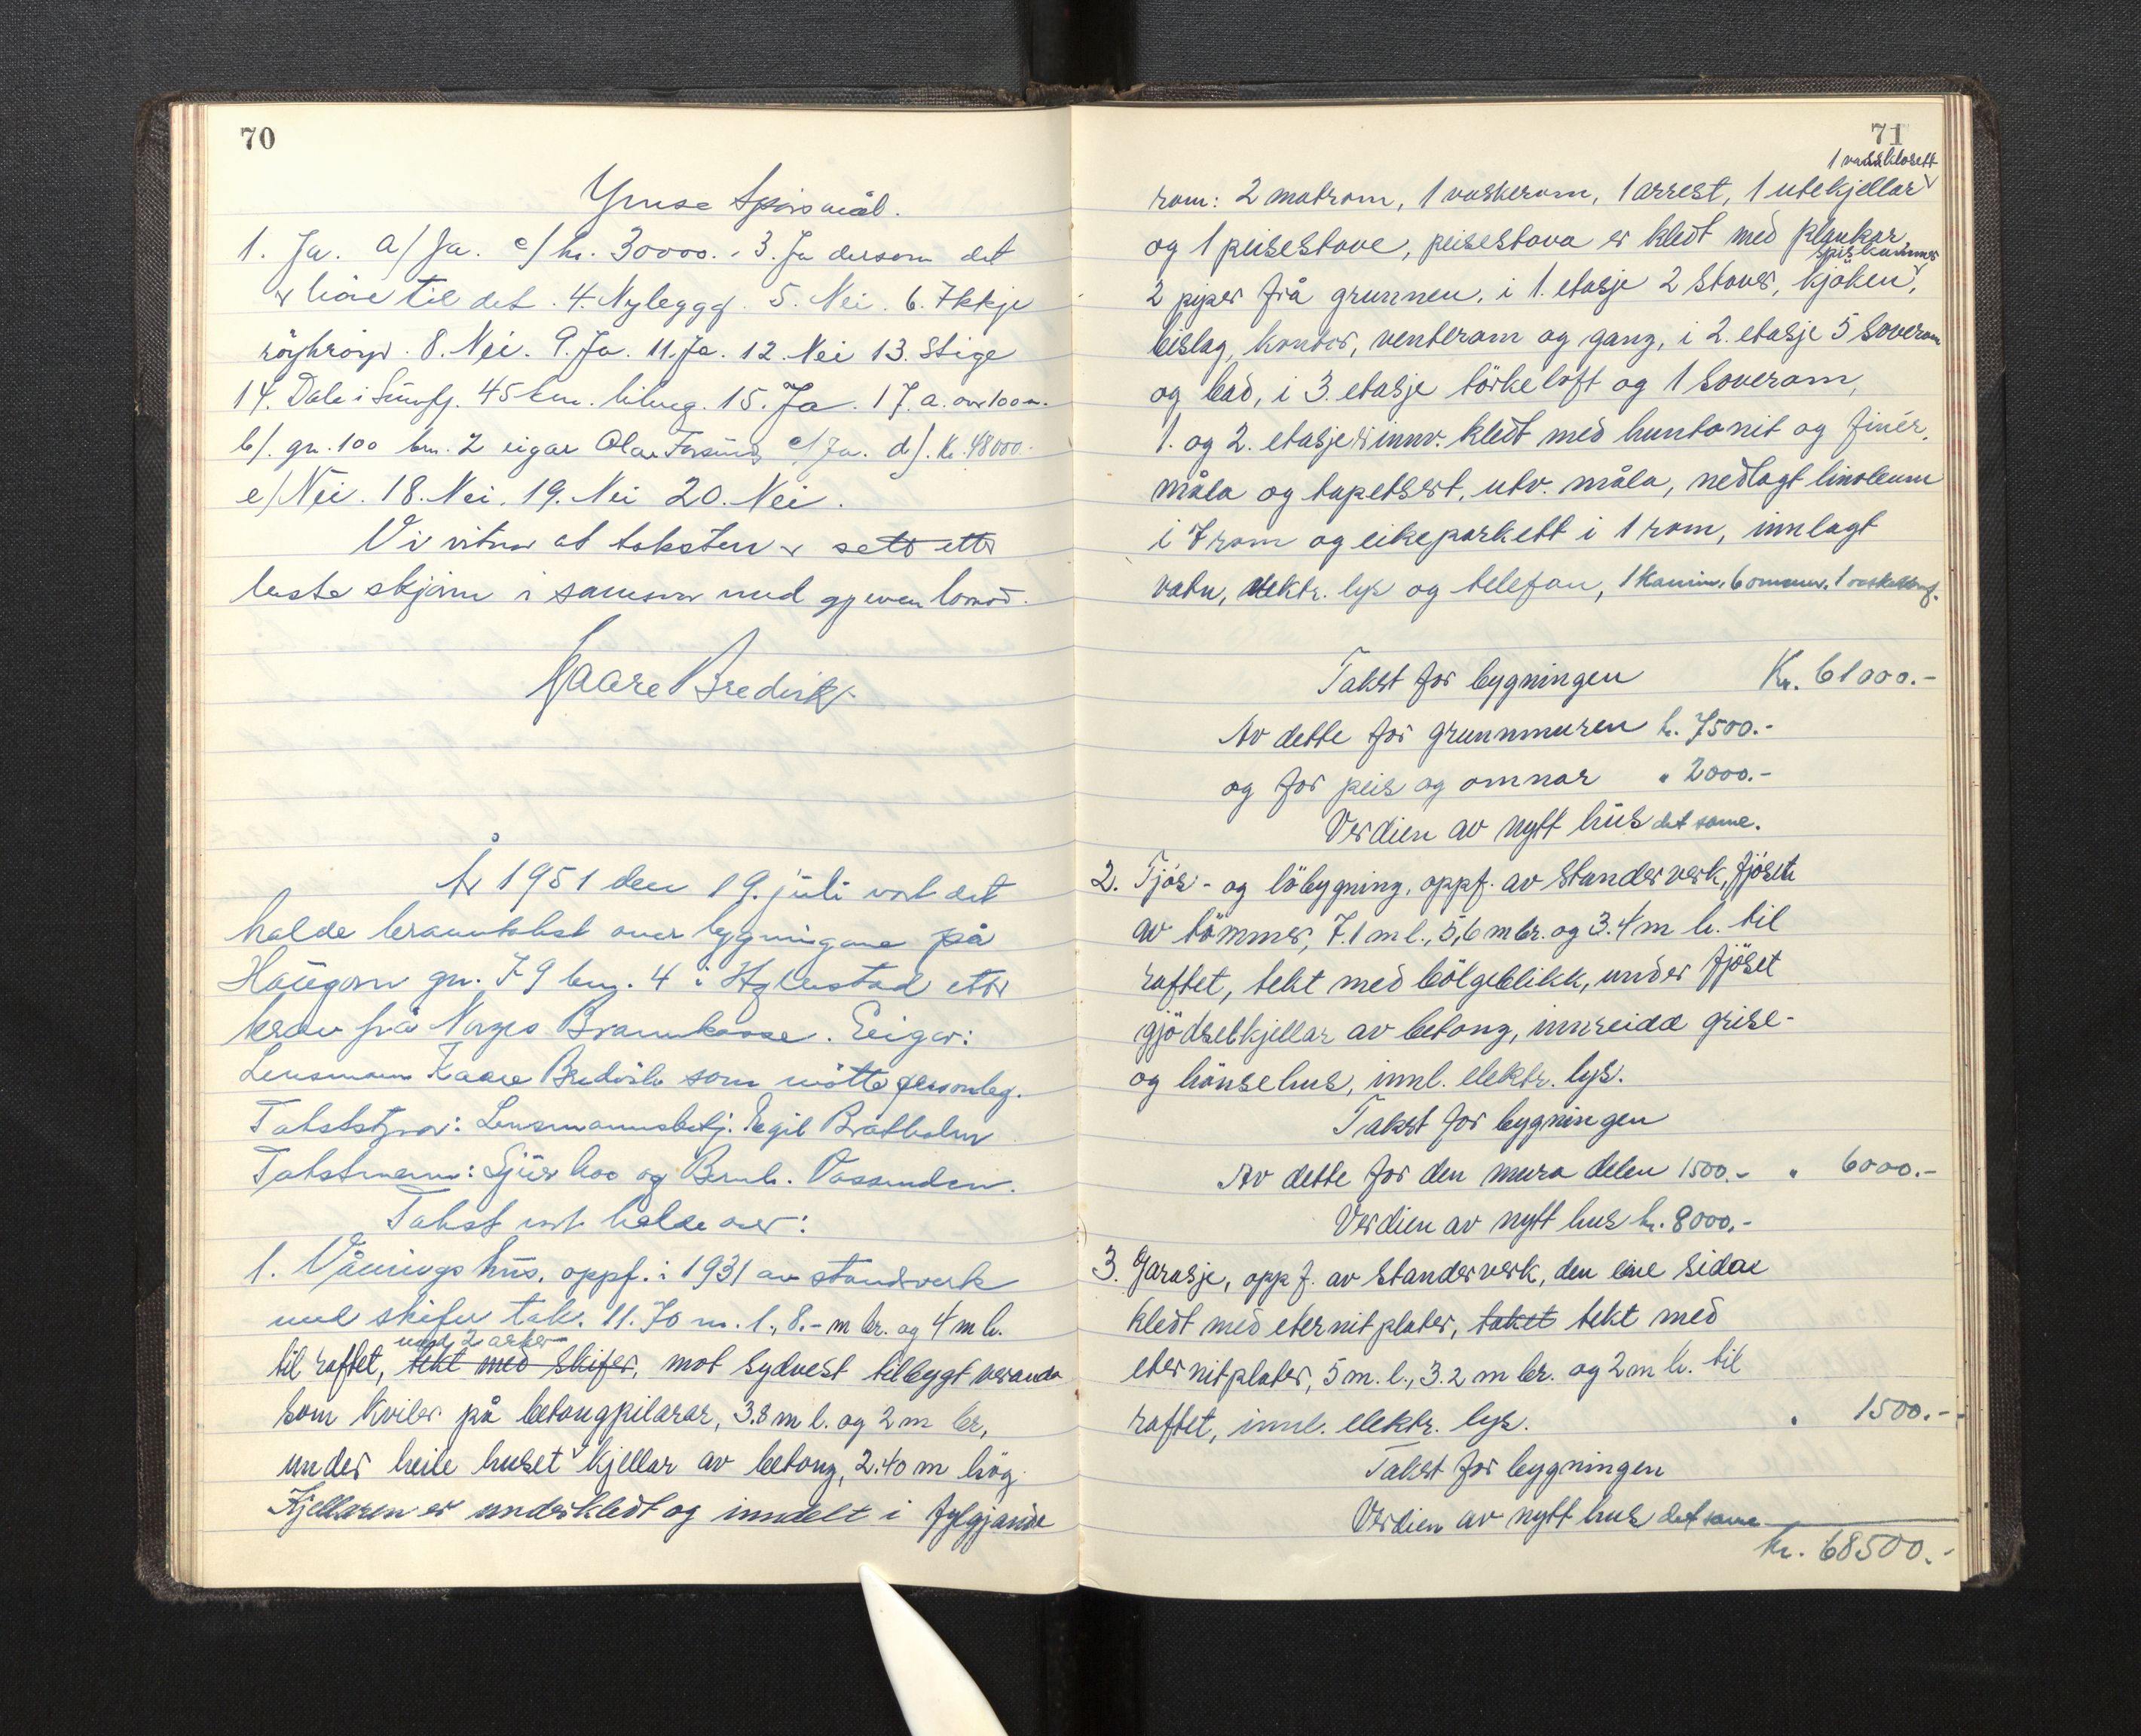 70
Ymse Spörsmål.
1. Ja. a/ Ja. c/ kr. 30000.- 3. Ja dersom det
er höve til det. 4. Nyleggg. 5. Nei. 6. Ikkje
röykröyr. 8. Nei. 9. Ja. 11. Ja. 12. Nei 13. Stige
14. Dale i Sunnfj. 45 km. bilveg. 15. Ja. 17. a. over 100 m.
b/. gn. 100 bn. 2 eigar Olav c/ Ja. d/. Kr. 48000.-
e/ Nei. 18. Nei. 19. Nei 20. Nei.
Vi vitnar at taksten er sett etter
beste skjönn i samsvar med gjeven lovnad.
Kaare Bredvik
År 1951 den 19. juli vart det
halde branntakst over bygningane på
Haugom gn. 79 bnr. 4 i Hyllestad etter
krav frå Norges Brannkasse. Eigar:
Lensmann Kaare Bredvik som mötte personleg.
Takststyrar: Lensmannsbetj. Egil Bratholm
Takstmenn: Sjur hoo og Bernh. Vassenden.
Takst vart halde over:
1. Våningshus, oppf. i 1931 av standverk
med skifer tak. 11.70 m. l., 8.- m br. og 4 m h.
med 2 arker
til raftet, tekt med skifer, mot sydvest tilbygt veranda
som kviler på betongpilarar, 3.8 m l. og 2 m br,
under heile huset kjellar av betong, 2.40 m hög.
Kjellaren er underkledt og inndelt i fylgjande
71
1 vassklosett
rom: 2 matrom, 1 vaskerom, 1 arrest, 1 utekjellar
og 1 peisestove, peisestova er kledt med plankar
spiskammer
2 piper frå grunnen, i 1. etasje 2 stover, kjöken,
bislag, kontor, venterom og gang, i 2. etasje 5 soverom
og bad, i 3. etasje törkeloft og 1 soverom,
1. og 2. etasje er innv. kledt med huntonit og finér,
måla og tapetsert, utv. måla, nedlagt linoleum
i 7 rom og eikeparkett i 1 rom, innlagt
vatn, elektr. lys og telefon, 1 kamin, 6 omnar, 1
Takst for bygningen Kr. 61000.-
Av dette for grunnmuren kr. 7500.-
og for peis og omnar " 2000.-
Verdien av nytt hus det same.
2. Fjös- og löbygning, oppf. av standerverk, fjöset
av tömmer, 7.1 m l., 5,6 m br. og 3.4 m h. til
raftet, tekt med bölgeblikk, under fjöset
gjödselkjellar av betong, innreidd grise-
og hönsehus, innl. elektr. lys.
Takst for bygningen
Av dette for den mura delen 1500.- " 6000.-
Verdien av nytt hus kr. 8000.-
3. Garasje, oppf. av standerverk, den eine sidae
kledt med eternitplater, taket tekt med
eternitplater, 5 m. l., 3.2 m br. og 2 m h. til
raftet, innl. elektr. lys. " 1500.-
Takst for bygningen
Verdien av nytt hus det same
kr. 68500.-